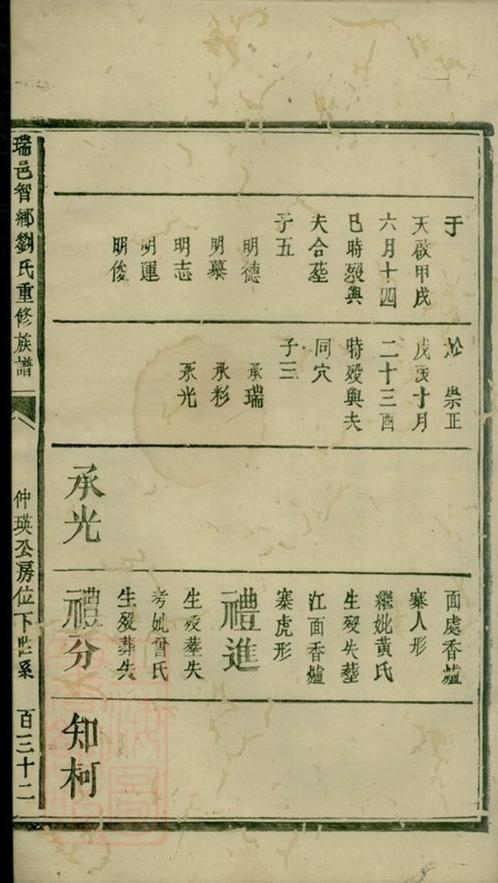 于
天啟甲戌
六月十四
巳時歿與
夫合塟
子五
明德
明慕
明志
明運
明俊
於崇正
戊寅十月
二十三酉
時歿與夫
同穴
子三
承瑞
承彩
承光
承光
面處香爐
寨人形
繼妣黄氏
生歿失塟
江面香爐
寨虎形
禮進
生歿塟失
考妣曾氏
生歿葬失
禮分
知柯
瑞邑智鄉劉氏重修族譜
仲瑛公房位下世系
百三十二